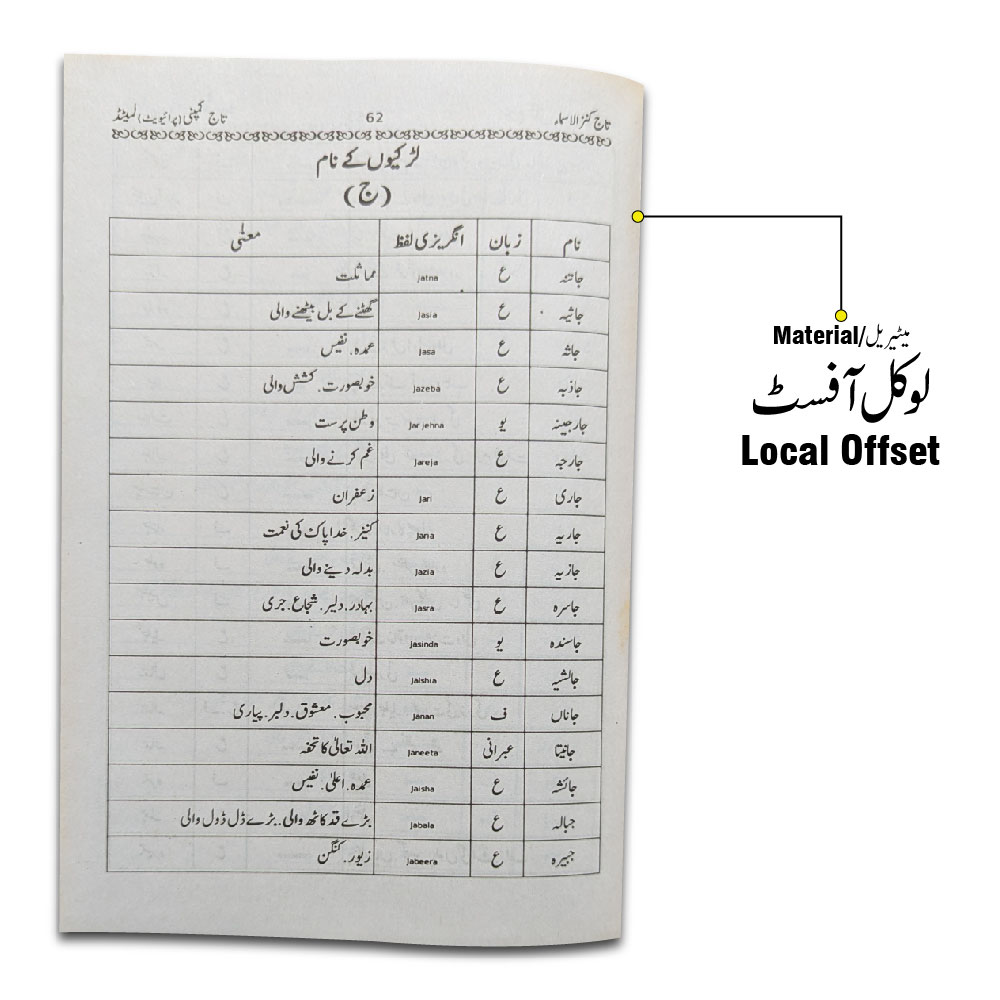 تاج کنز الاسماء 62 تاج کمپنی (پرائیویٹ) لمیٹڈ
لڑکیوں کے نام
(ج)
نام زبان انگریزی لفظ معنٰی
جاتنہ ع Jatna مماثلت
جاثیہ ع Jasia گھٹنے کے بل بیٹھنے والی
جاثہ ع Jasa عمدہ. نفیس
جاذبہ ع Jazeba خوبصورت. کشش والی
جارجینہ یو Jarjehna وطن پرست
جارجہ ع Jareja غم کرنے والی
جاری ع Jari زعفران
جاریہ ع Jaria کنیز. خدا پاک کی نعمت
جازیہ ع Jazia بدلہ دینے والی
جاسرہ ع Jasra بہادر. دلیر. شجاع. جری
جاسندہ یو Jasinda خوبصورت
جالشیہ ع Jalshia دل
جاناں ف Janan محبوب. معشوق. دلبر. پیاری
جانیتا عبرانی Janeeta اللہ تعالٰی کا تحفہ
جائشہ ع Jaisha عمدہ. اعلیٰ. نفیس
جبالہ ع Jabala بڑے قد کاٹھ والی. بڑے ڈل ڈول والی
جبیرہ ع Jabeera زیور. کنگن
Material/میٹیریل
لوکل آفسٹ
Local Offset